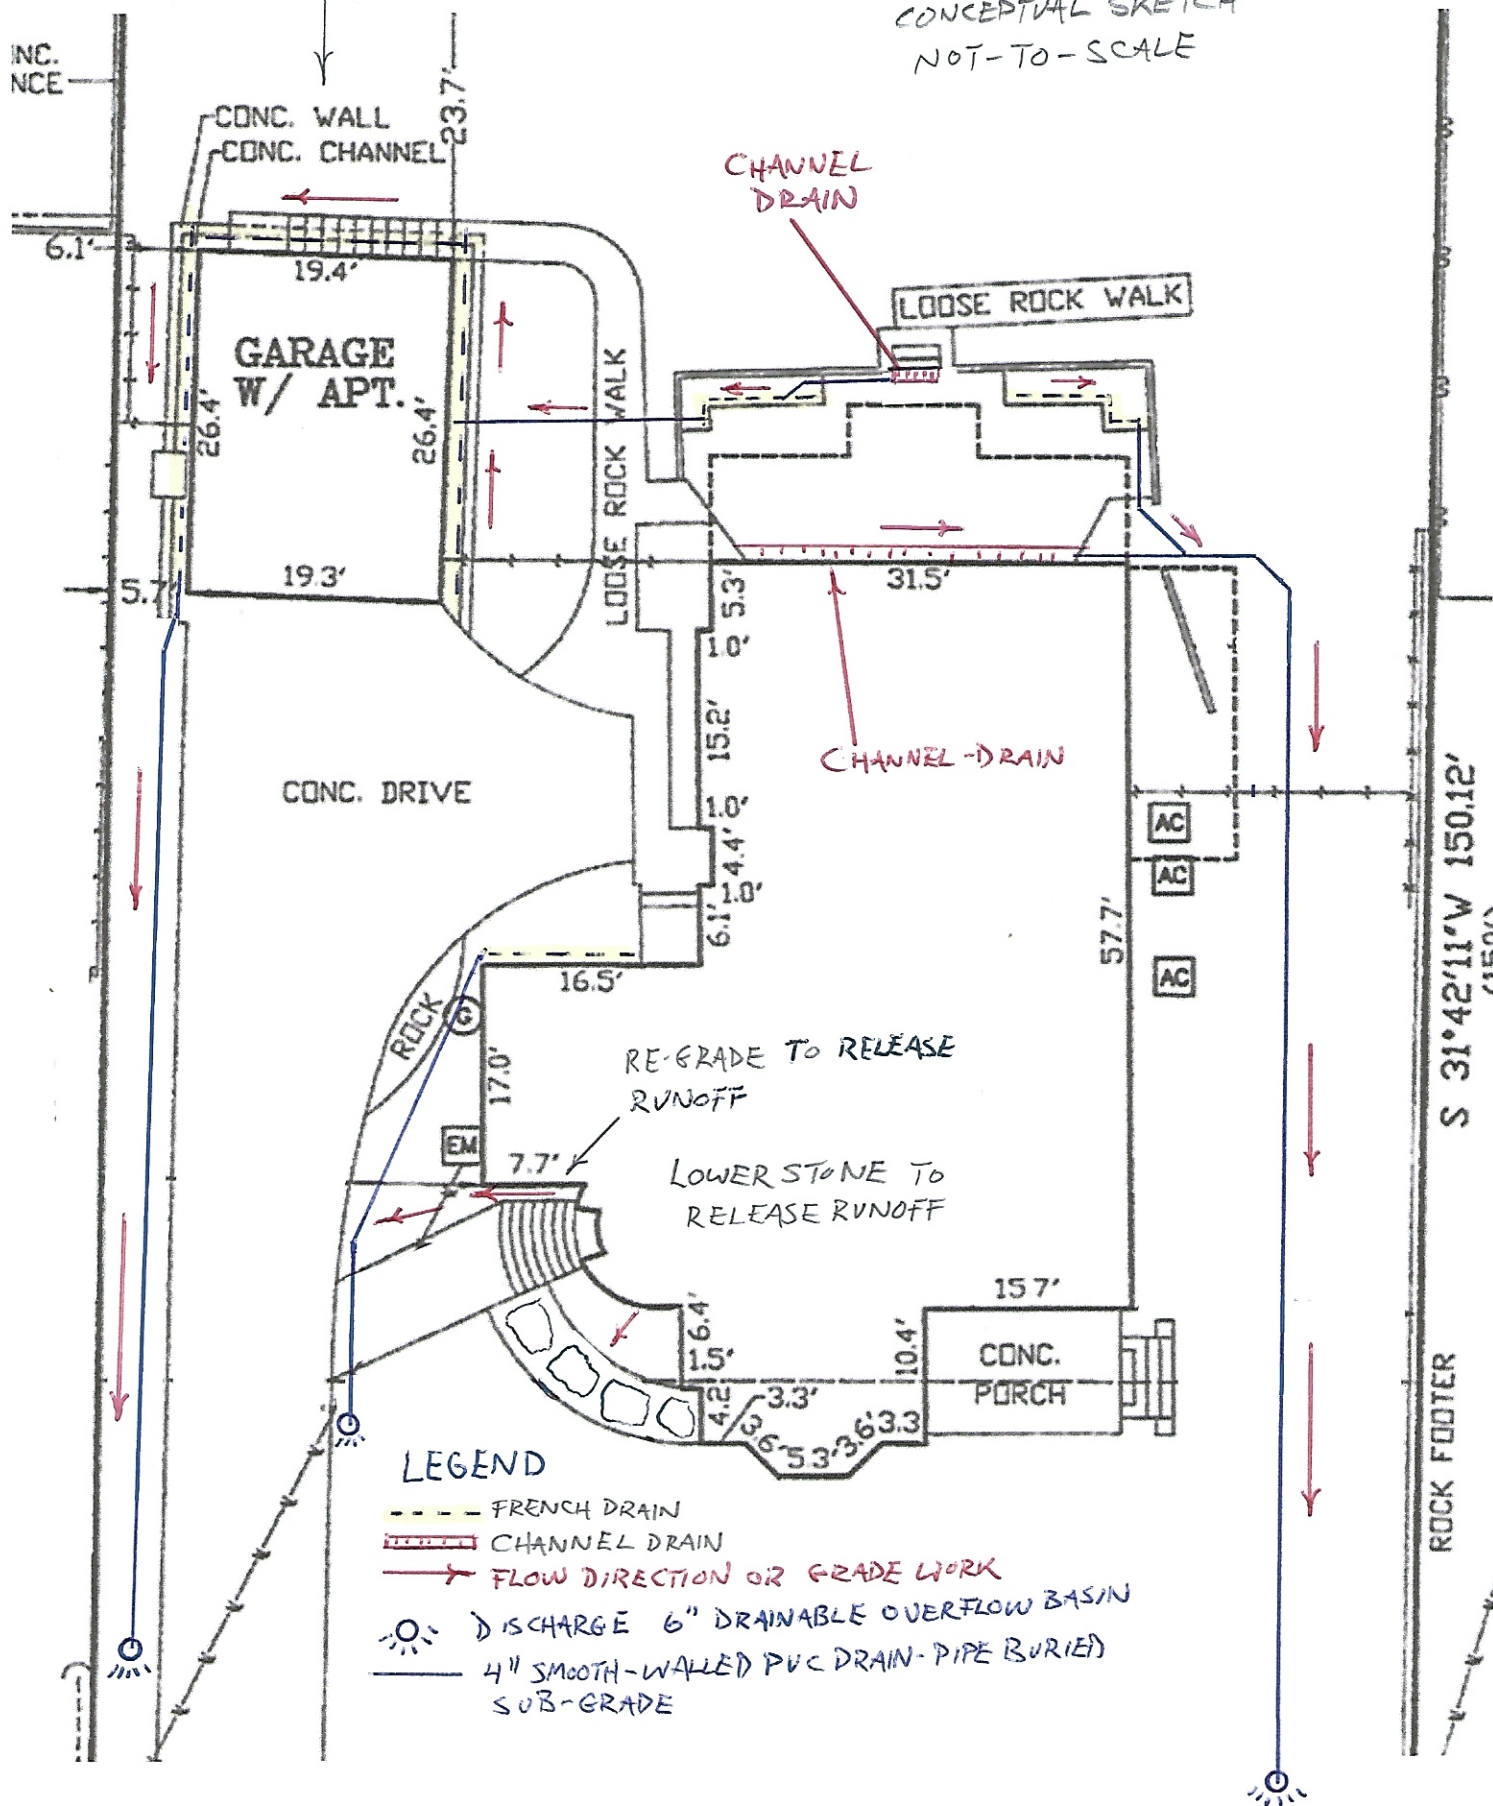 CONCEPTUAL SKETCH
NOT-TO-SCALE
INC.
NCE
CONC. WALL
CONC. CHANNEL
23.7'
CHANNEL
DRAIN
6.1'
19.4'
LOOSE ROCK WALK
GARAGE
W/ APT.
26.4'
26.4'
LOOSE ROCK WALK
19.3'
5.7'
5.3'
31.5'
1.0'
15.2'
CHANNEL-DRAIN
CONC. DRIVE
1.0'
4.4'
1.0'
6.1'
AC
AC
AC
57.7'
S 31°42'11"W 150.12'
16.5'
ROCK
G
17.0'
RE-GRADE TO RELEASE
RUNOFF
EM
7.7'
LOWER STONE TO
RELEASE RUNOFF
15 7'
6.4'
1.5'
10.4'
CONC.
PORCH
4.2'
3.3'
3.6'
5.3'
3.6'
3.3
ROCK FOOTER
LEGEND
FRENCH DRAIN
CHANNEL DRAIN
FLOW DIRECTION OR GRADE WORK
DISCHARGE 6" DRAINABLE OVERFLOW BASIN
4" SMOOTH-WALLED PVC DRAIN-PIPE BURIED
SUB-GRADE